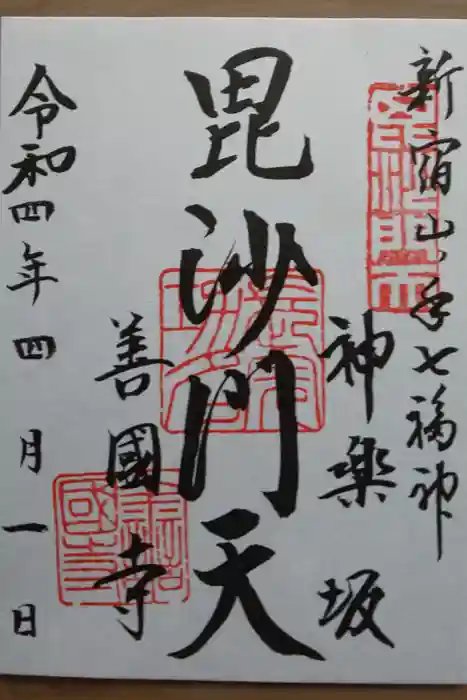 新宿山ノ手七福神
神楽坂
毘沙門天
善國寺
令和四年四月一日